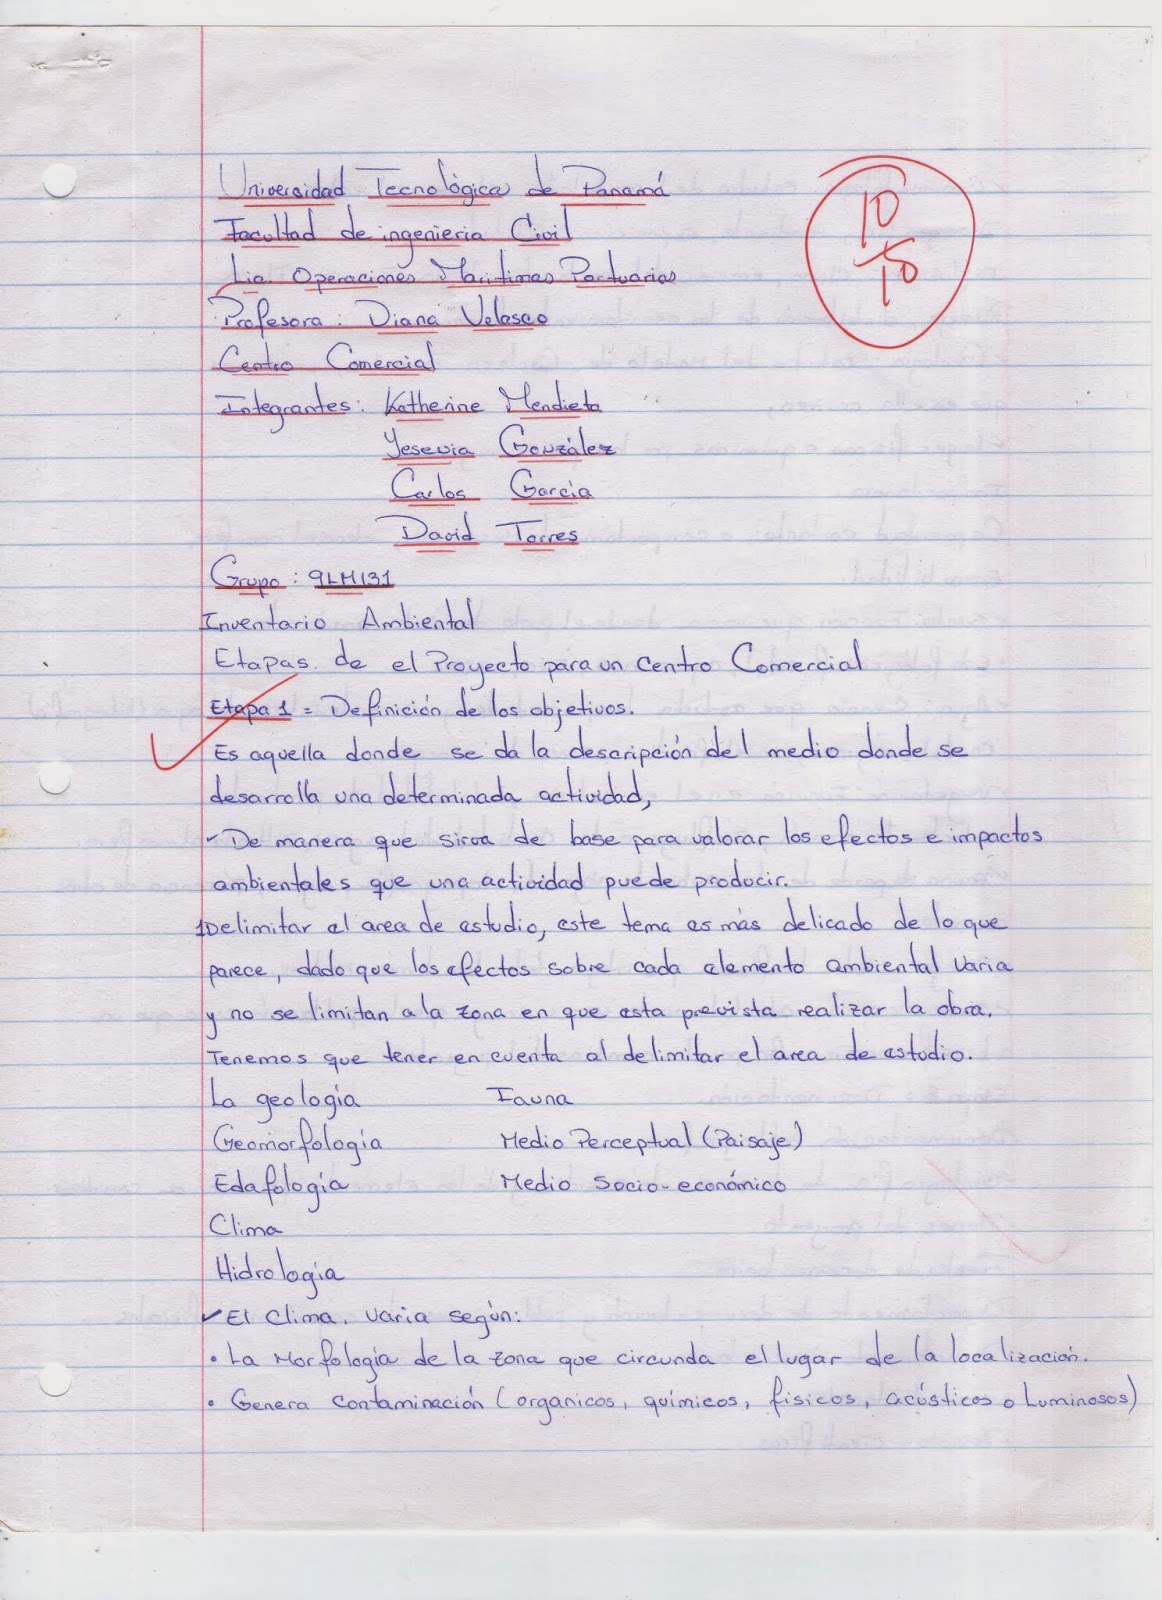 Universidad Tecnológica de Panamá
10
10
Facultad de ingenieria Civil
Lic. Operaciones Maritimas Portuarias
Profesora: Diana Velasco
Centro Comercial
Integrantes: Katherine Mendieta
Yesevia González
Carlos Garcia
David Torres
Grupo: 9LM131
Inventario Ambiental
Etapas de el Proyecto para un Centro Comercial
Etapa 1 = Definición de los objetivos.
Es aquella donde se da la descripción del medio donde se
desarrolla una determinada actividad,
✓ De manera que sirva de base para valorar los efectos e impactos
ambientales que una actividad puede producir.
1Delimitar el area de estudio, este tema es más delicado de lo que
parece, dado que los efectos sobre cada elemento ambiental varia
y no se limitan a la zona en que esta prevista realizar la obra.
Tenemos que tener en cuenta al delimitar el area de estudio.
La geología Fauna
Geomorfología Medio Perceptual (Paisaje)
Edafología Medio Socio-económico
Clima
Hidrología
✓ El Clima. varia según:
• La Morfología de la zona que circunda el lugar de la localización.
• Genera contaminación (organicos, químicos, físicos, acústicos o Luminosos)